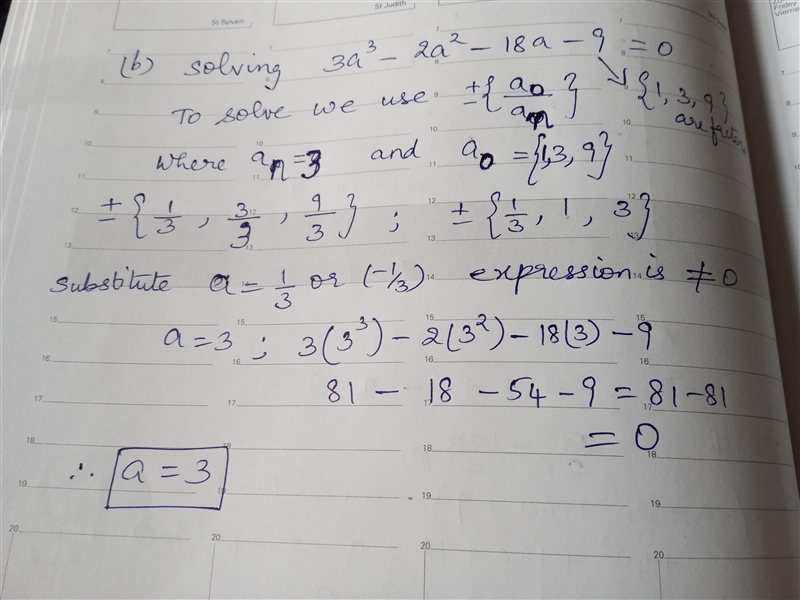 St Sylvain
St Judith
Friday
(b) solving 3a³ - 2a² - 18a - 9 = 0
To solve we use ±{a₀/aₙ} {1, 3, 9}
are factors
where aₙ = 3 and a₀ = {1,3, 9}
±{1/3, 3/3, 9/3} ; ±{1/3, 1, 3}
substitute a = 1/3 or (-1/3) expression is ≠ 0
a = 3 ; 3(3³) - 2(3²) - 18(3) - 9
81 - 18 - 54 - 9 = 81 - 81
= 0
∴ a = 3